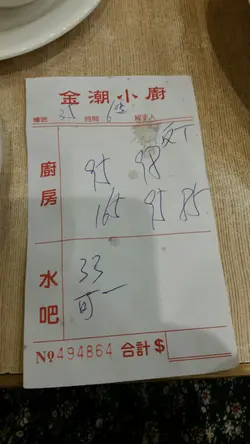 金潮小廚
檯號 35 時間 經手人
廚房
95 98 走T
165 95 85
水吧
33
可一
№494864 合計$